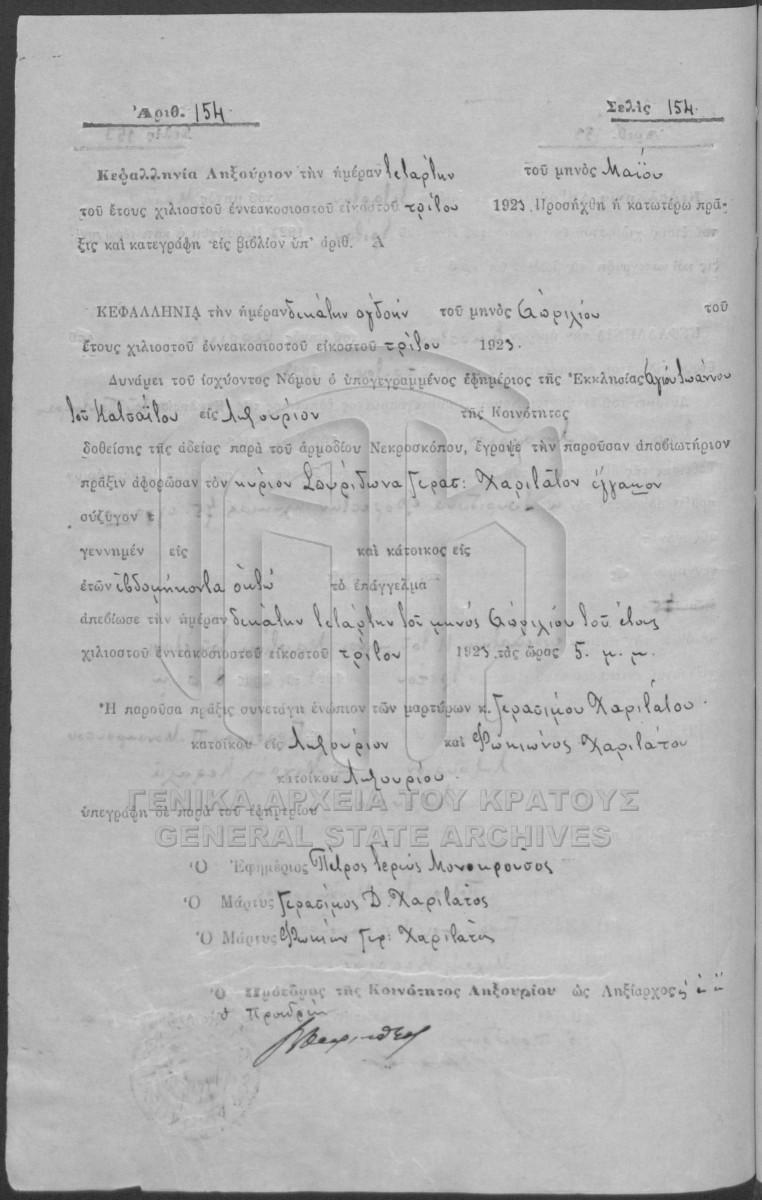 Ἀριθ. 154
Σελὶς 154
Κεφαλληνία Ληξούριον τὴν ἡμέραν τετάρτην τοῦ μηνὸς Μαΐου
τοῦ ἔτους χιλιοστοῦ ἐννεακοσιοστοῦ εἰκοστοῦ τρίτου 1923. Προσήχθη ἡ κατωτέρω πρᾶ-
ξις καὶ κατεγράφη εἰς βιβλίον ὑπ' ἀριθ. Α
ΚΕΦΑΛΛΗΝΙΑ τὴν ἡμέραν δεκάτην ὀγδόην τοῦ μηνὸς Ἀπριλίου τοῦ
ἔτους χιλιοστοῦ ἐννεακοσιοστοῦ εἰκοστοῦ τρίτου 1923.
Δυνάμει τοῦ ἰσχύοντος Νόμου ὁ ὑπογεγραμμένος ἐφημέριος τῆς Ἐκκλησίας Ἁγίου Ἰωάννου
τοῦ Κατσαΐτου εἰς Ληξούριον τῆς Κοινότητος
δοθείσης τῆς ἀδείας παρὰ τοῦ ἁρμοδίου Νεκροσκόπου, ἔγραψε τὴν παροῦσαν ἀποβιωτήριον
πρᾶξιν ἀφορῶσαν τὸν κύριον Σπυρίδωνα Γερασ: Χαριτᾶτον ἔγγαμον
σύζυγον τ
γεννημέν εἰς καὶ κάτοικος εἰς
ἐτῶν ἑβδομήκοντα ὀκτὼ τὸ ἐπάγγελμα
ἀπεβίωσε τὴν ἡμέραν δεκάτην τετάρτην τοῦ μηνὸς Ἀπριλίου τοῦ ἔτους
χιλιοστοῦ ἐννεακοσιοστοῦ εἰκοστοῦ τρίτου 1923 τὰς ὥρας 5. μ. μ.
Ἡ παροῦσα πρᾶξις συνετάγη ἐνώπιον τῶν μαρτύρων κ. Γερασίμου Χαριτάτου
κατοίκου εἰς Ληξούριον καὶ Φωκίωνος Χαριτάτου
κατοίκου Ληξουρίου.
ὑπεγράφη δὲ παρὰ τοῦ ἐφημερίου
ΓΕΝΙΚΑ ΑΡΧΕΙΑ ΤΟΥ ΚΡΑΤΟΥΣ
GENERAL STATE ARCHIVES
Ὁ Ἐφημέριος Πέτρος Ἱερεὺς Μονοκροῦσος
Ὁ Μάρτυς Γεράσιμος Δ. Χαριτᾶτος
Ὁ Μάρτυς Φωκίων Γερ: Χαριτᾶτος
Ὁ Πρόεδρος τῆς Κοινότητος Ληξουρίου ὡς Ληξίαρχος